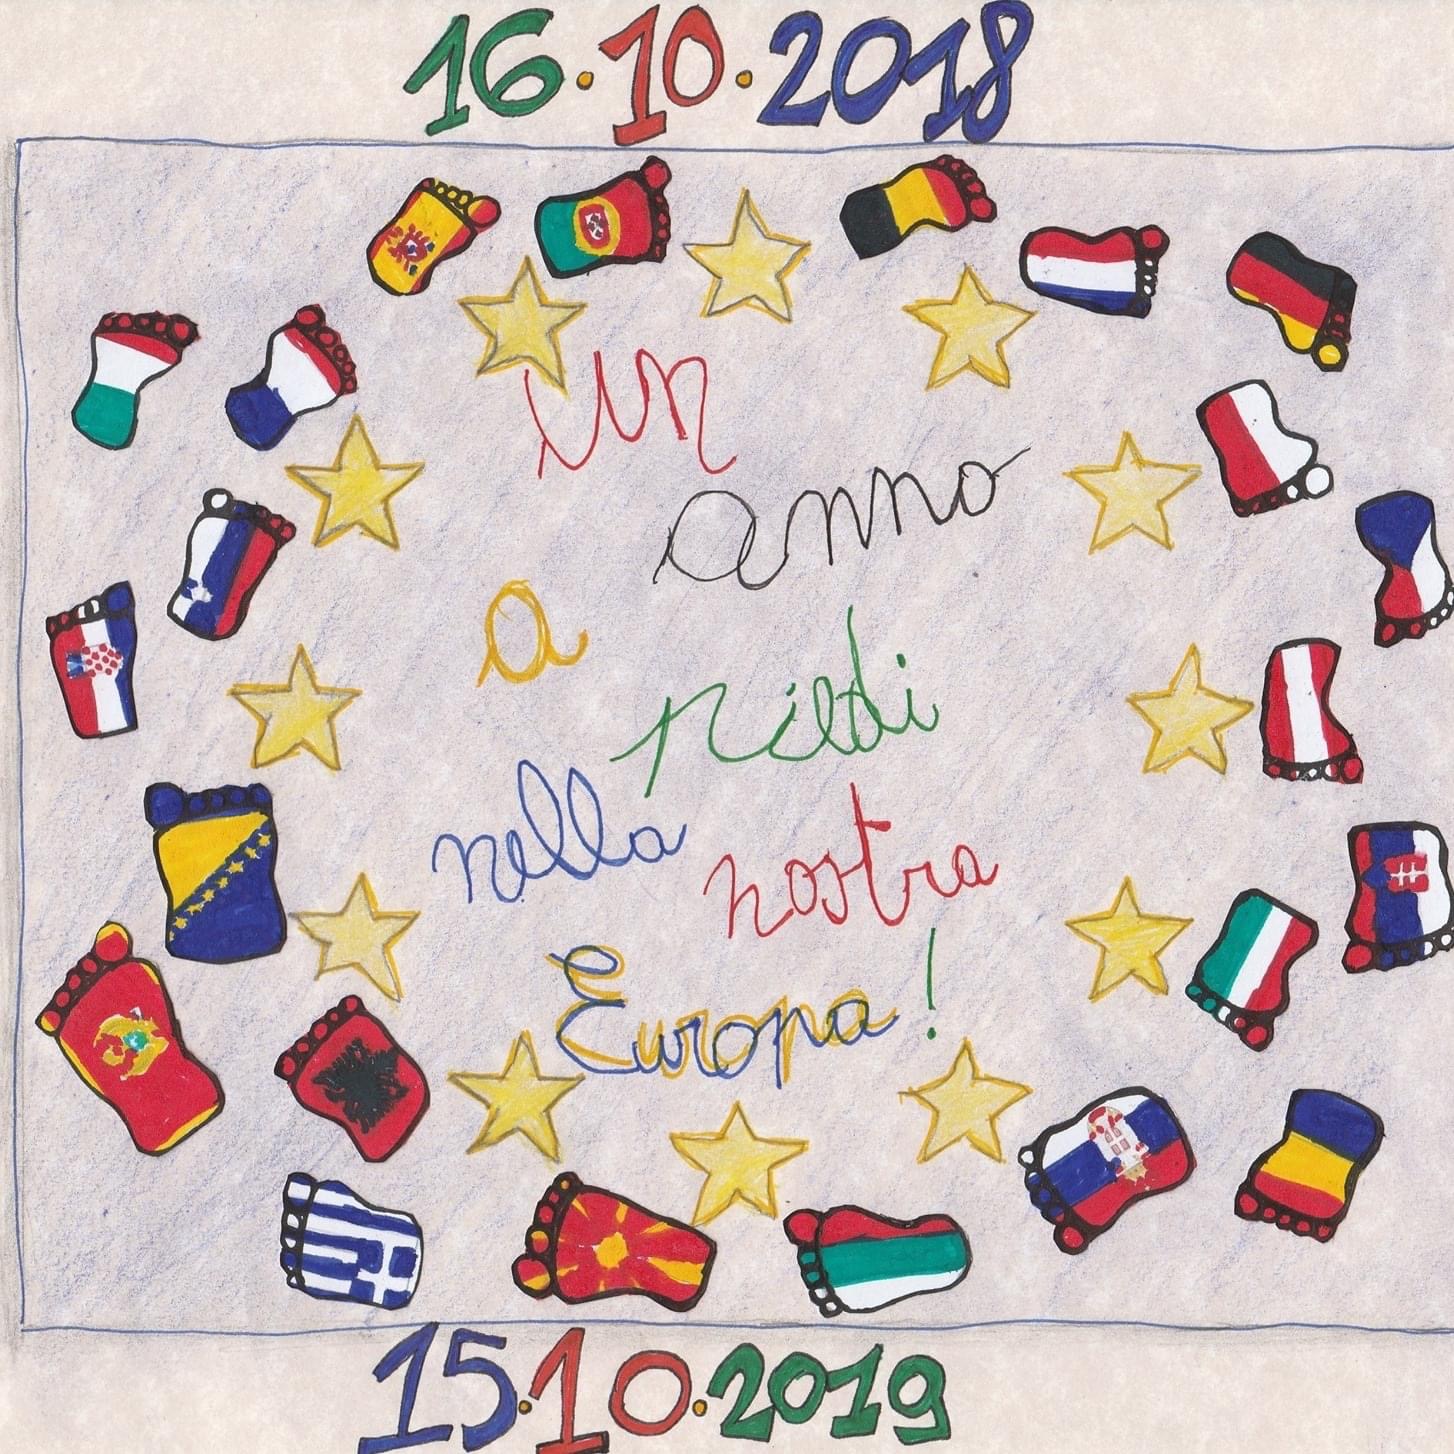 16.10.2018
Un
anno
a
piedi
nella nostra
Europa!
15.10.2019